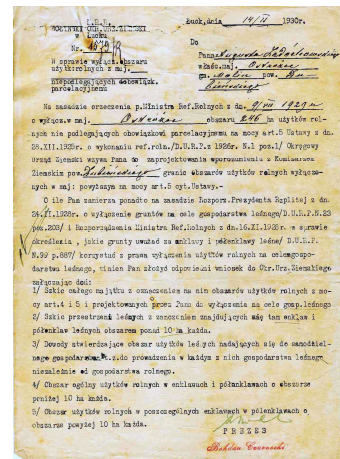 I.R.P.
WOŁYŃSKI OKR.URZ.ZIEMSKI
w Łucku
Nr.
W sprawie wyłącz.obszaru
użytk.rolnych z maj.
niepodlegających obowiązk.
parcelacyjnemu
Łuck, dnia 14/II 1930r.
Do
Pana Augusta
właśc.maj. Ostrożec
gm. Malin pow. Du-
bieńskiego
Na zasadzie orzeczenia p.Ministra Ref.Rolnych z dn. 9/VII 1929 r.
o wyłącz.w maj. Ostrożec obszaru 246 ha użytków rol-
nych nie podlegających obowiązkowi parcelacyjnemu na mocy art.5 Ustawy z dn.
28.XII.1925r. o wykonaniu ref.roln./D.U.R.P.z 1926r. N.1 poz.1/ Okręgowy
Urząd Ziemski wzywa Pana do zaprojektowania w porozumieniu z Komisarzem
Ziemskim pow. Dubieńskiego granic obszarów użytków rolnych wyłączo-
nych w maj: powyższym na mocy art.5 cyt.Ustawy.-
O ile Pan zamierza ponadto na zasadzie Rozporz.Prezydenta Rzplitej z dn.
24.II.1928r. o wyłączenie gruntów na cele gospodarstwa leśnego/D.U.R.P.N.23
poz.203/ i Rozporządzenia Ministra Ref.Rolnych z dn.16.XII.1928r. w sprawie
określenia , jakie grunty uważać za enklawy i półenklawy leśne/ D.U.R.P.
N.99 p.887/ korzystać z prawa wyłączenia użytków rolnych na cele gospo-
darstwa leśnego, winien Pan złożyć odpowiedni wniosek do Okr.Urz.Ziemskiego
załączając doń:
1/ Szkic całego majątku z oznaczeniem na nim obszarów użytków rolnych z mo-
cy art.4 i 5 i projektowanych przez Pana do wyłączenia na cele gosp.leśnego
2/ Szkic przestrzeni leśnych z zaznaczeniem znajdujących się tam enklaw i
półenklaw leśnych obszarem ponad 10 ha każda.
3/ Dowody stwierdzające obszar użytków leśnych nadających się do samodziel-
nego gospodarstwa t.z.do prowadzenia w każdym z nich gospodarstwa leśnego
niezależnie od gospodarstwa rolnego.
4/ Obszar ogólny użytków rolnych w enklawach i półenklawach o obszarze
poniżej 10 ha każda.
5/ Obszar użytków rolnych w poszczególnych enklawach w półenklawach o
obszarze powyżej 10 ha każda.
PREZES
Bohdan